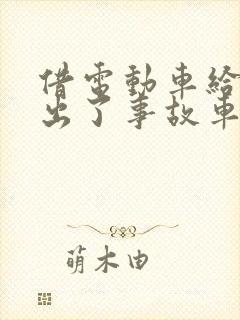 借電動車給
出了事故車
萌木由